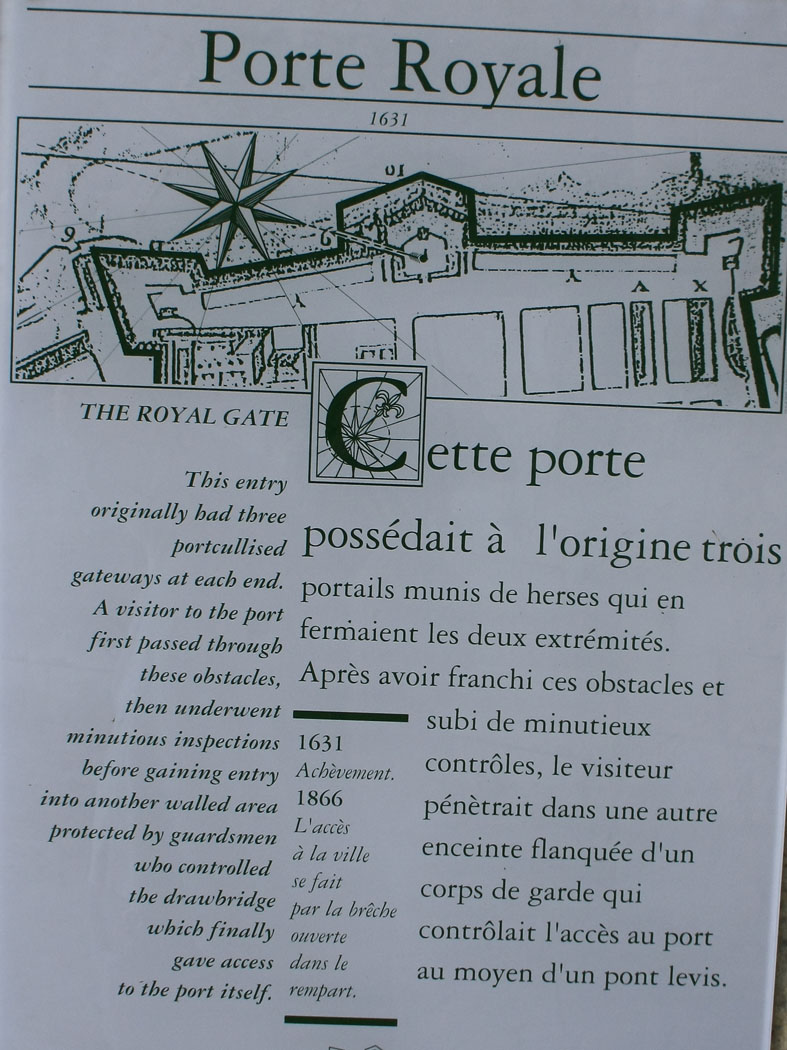 Porte Royale
1631
THE ROYAL GATE
This entry
originally had three
portcullised
gateways at each end.
A visitor to the port
first passed through
these obstacles,
then underwent
minutious inspections
before gaining entry
into another walled area
protected by guardsmen
who controlled
the drawbridge
which finally
gave access
to the port itself.
Cette porte
possédait à l'origine trois
portails munis de herses qui en
fermaient les deux extrémités.
Après avoir franchi ces obstacles et
subi de minutieux
contrôles, le visiteur
pénètrait dans une autre
enceinte flanquée d'un
corps de garde qui
contrôlait l'accès au port
au moyen d'un pont levis.
1631
Achèvement.
1866
L'accès
à la ville
se fait
par la brêche
ouverte
dans le
rempart.